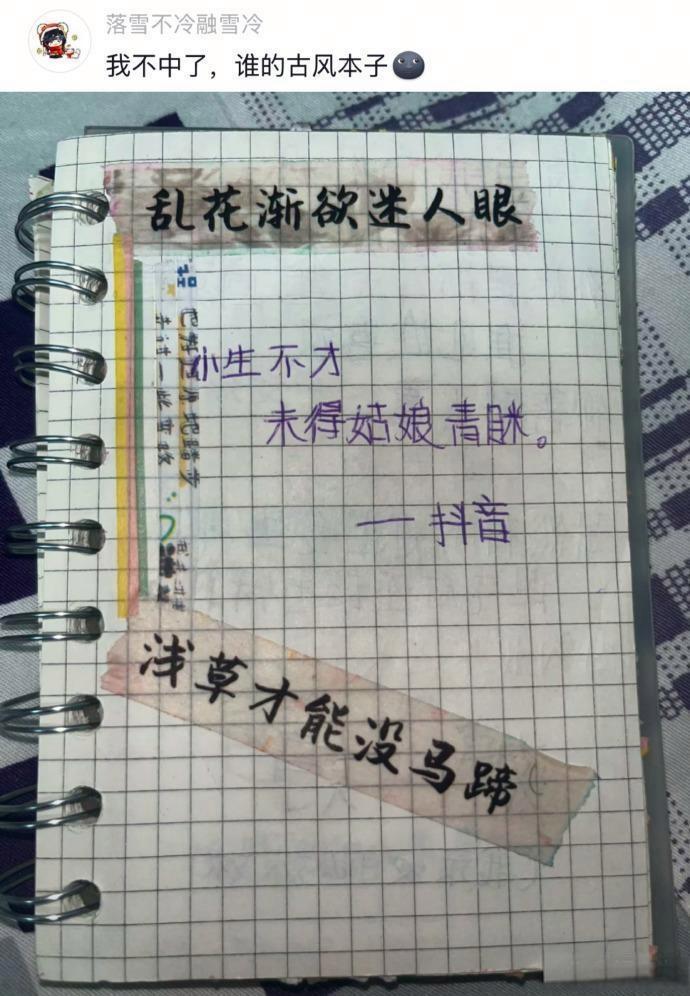 落雪不冷融雪冷
我不中了，谁的古风本子🌚
乱花渐欲迷人眼
小生不才
未得姑娘青睐。
——抖音
浅草才能没马蹄